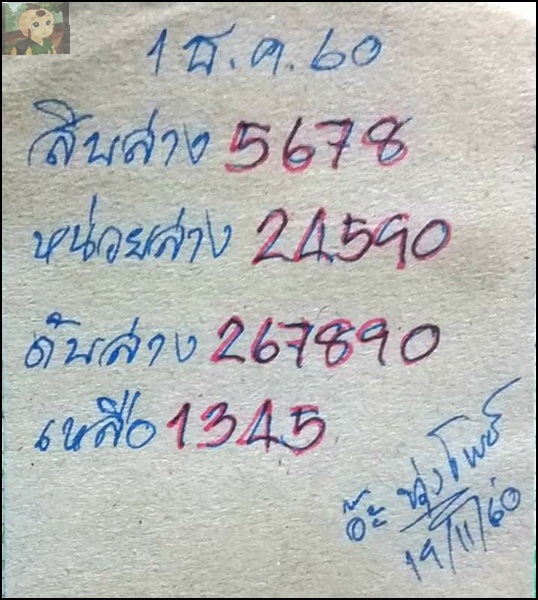 1 ธ.ค.60
สิบล่าง 5678
หน่วยล่าง 24590
ต้นล่าง 267890
เหลือ 1345
19/11/60